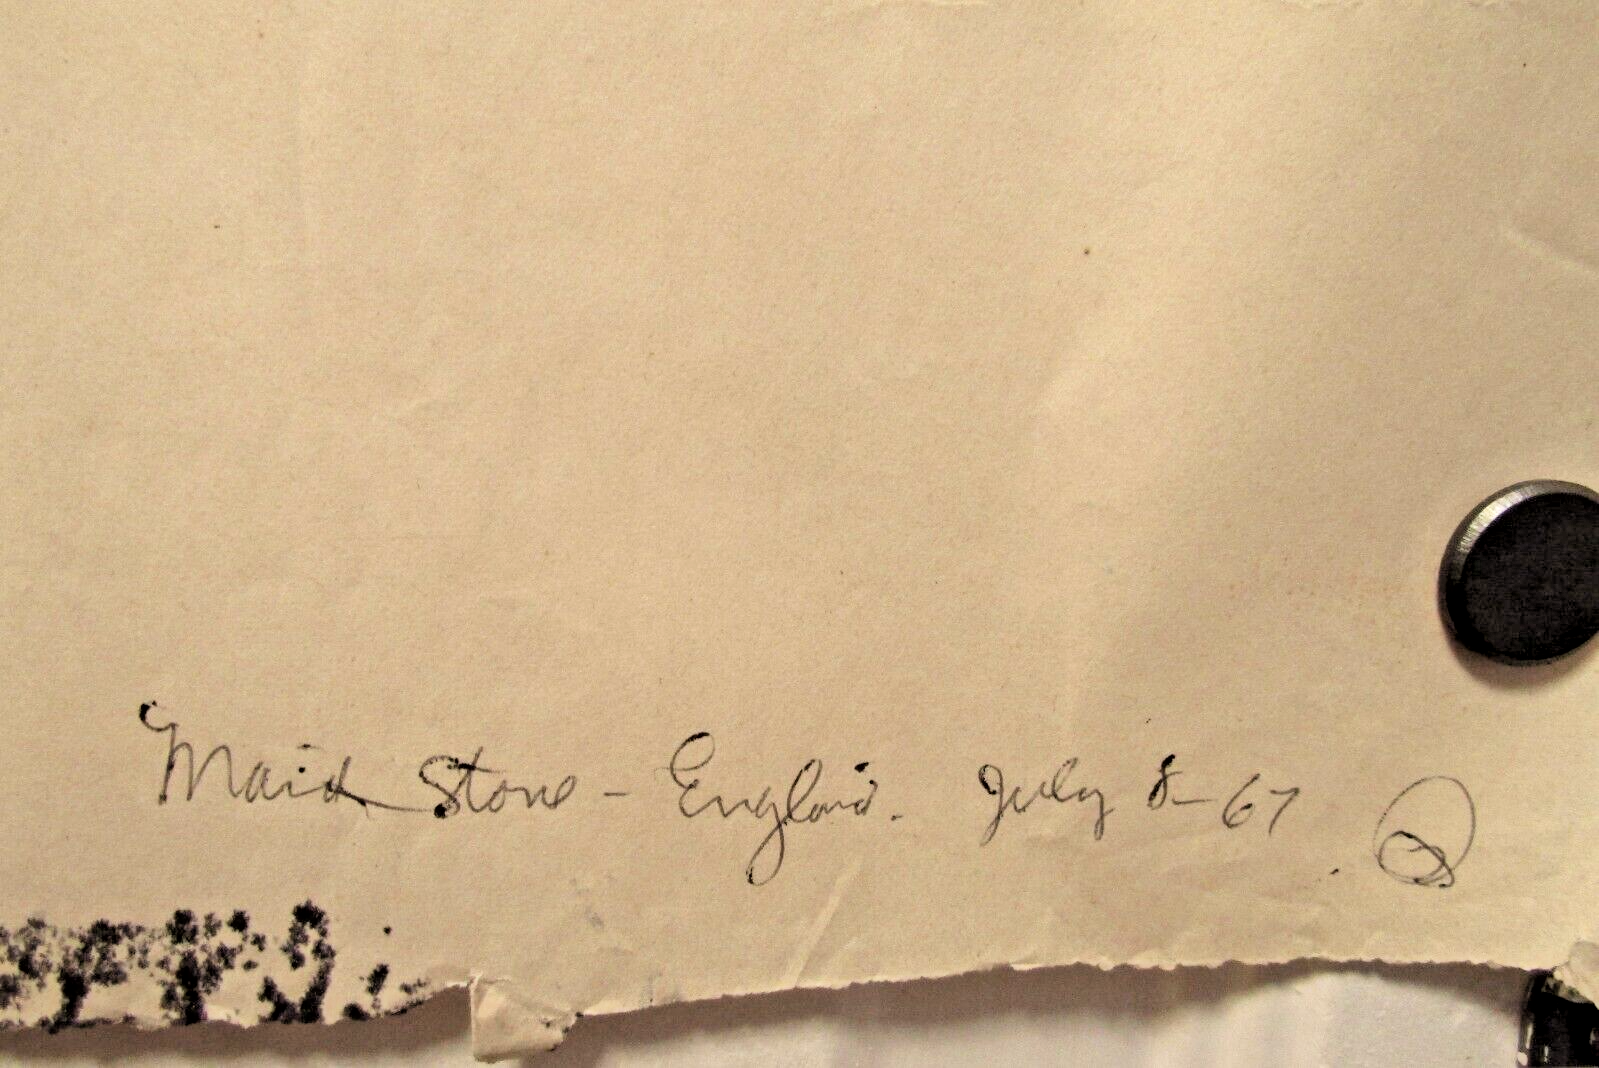 Maid Stone - England. July 8-67